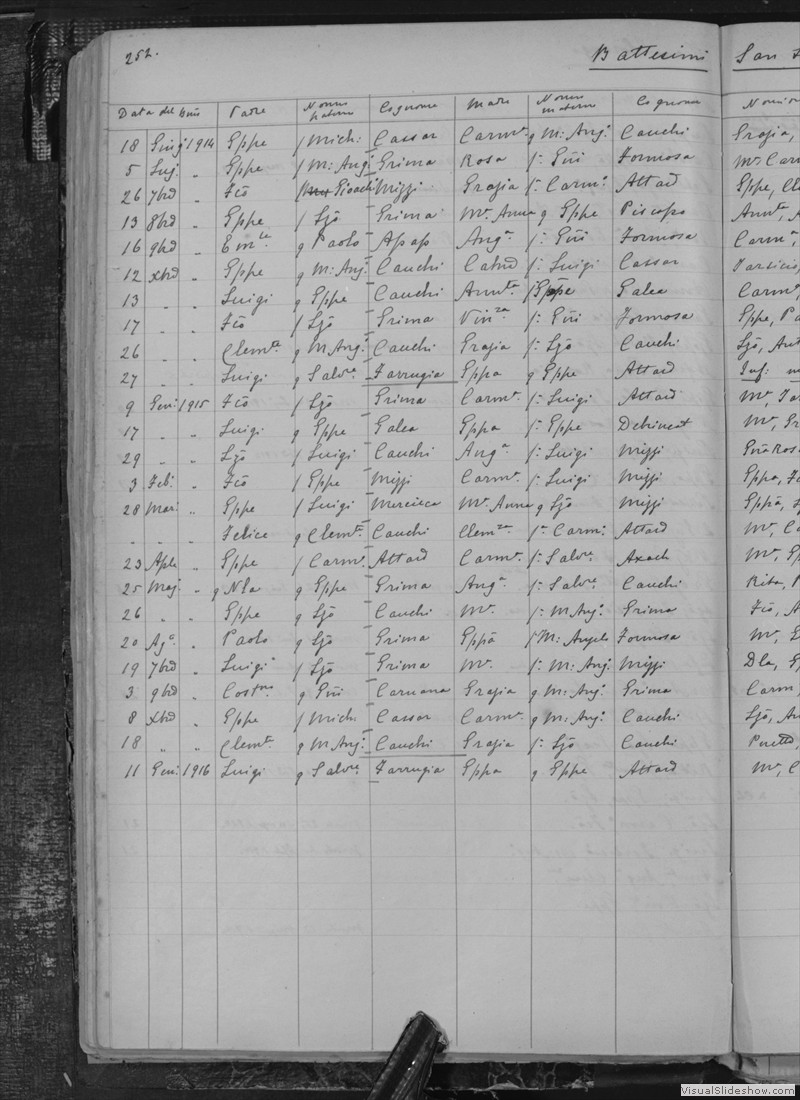 252. Battesimi San
Data del Bño Padre Nonno paterno Cognome Madre Nonno materno Cognome
18 Giug. 1914 Gppe f Mich: Cassar Carmª g M: Angˡ Cauchi Grazia,
5 Lug. " Gppe f M: Angˡ Grima Rosa f: Gñi Formosa Mª Carm
26 7bre " Fčo Gioachi Mizzi Grazia f: Carmˡ Attard Gppe, Cle
13 8bre " Gppe f Ljō Grima Mª Anna g Gppe Piscopo
16 9bre " g Paolo Apap Angª f: Gñi Formosa Carmª,
12 xbre " Gppe g M: Angˡ Cauchi f: Luigi Cassar
13 " " Luigi g Gppe Cauchi f Gppe Galea Carmª,
17 " " Fčo f Ljō Grima f: Gñi Formosa Gppe, Pa
26 " " Clemᵗᵉ g M Angˡ Cauchi Grazia f: Ljō Cauchi Ljō, Ant
27 " " Luigi g Salvʳᵉ Farrugia Gppa g Gppe Attard
9 Gen: 1915 Fčo f Ljō Grima Carmª f: Luigi Attard
17 " " Luigi g Gppe Galea Gppa f: Gppe Debrincat
29 " " Ljō f Luigi Cauchi Angª f: Luigi Mizzi
3 Feb: " Fčo f Gppe Mizzi Carmª f: Luigi Mizzi Gppa,
28 Mar: " Gppe f Luigi Mercieca Mª Anna g Ljō Mizzi Gppa,
" " " Felice g Clemᵗᵉ Cauchi f: Carmˡ Attard
23 Aple " Gppe f Carmˡ Attard Carmª f: Salvʳᵉ Axach
25 Mag. " g Nla g Gppe Grima Angª f: Salvʳᵉ Cauchi Rita,
26 " " Gppe g Ljō Cauchi Mª f: M Angˡ Grima Fčo,
20 Agº " Paolo g Ljō Grima Gppa f M: Angelo Formosa
19 7bre " Luigi f Ljō Grima Mª f: M: Angˡ Mizzi
3 9bre " g Gñi Caruana Grazia g M: Angˡ Grima Carm,
8 xbre " Gppe f Mich: Cassar Carmª g M: Angˡ Cauchi Ljō,
18 " " Clemᵗᵉ g M Angˡ Cauchi Grazia f: Ljō Cauchi
11 Gen: 1916 Luigi g Salvʳᵉ Farrugia Gppa g Gppe Attard
VisualSlideshow.com